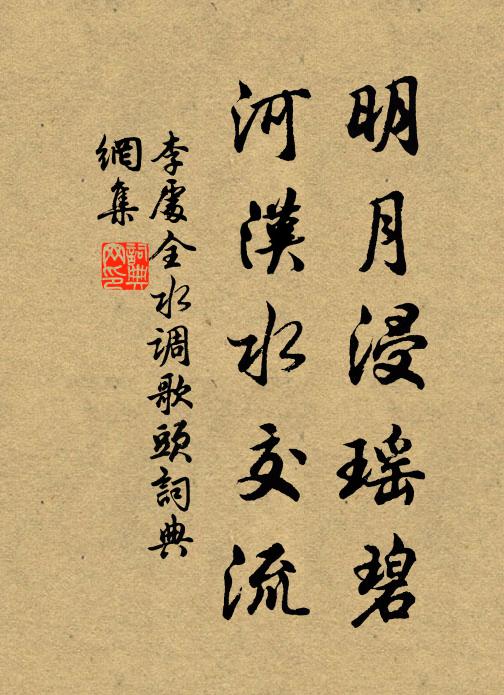 明月浸瑶碧
河漢水交流
李處全水调歌頭詞典
網集
詞典
网印